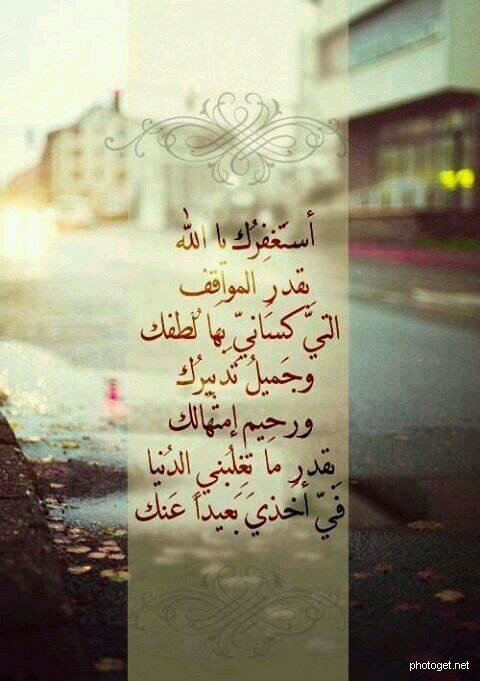 أستَغفِرُك يا الله
بِقدرِ المواقِف
التيّ كسَانيّ بِها لُطفك
وجَميلُ تَدبيرُك
ورحِيم إمتِهالك
بِقدرِ ما تغلِبُني الدُنيا
فيّ أخذيَ بَعيداً عَنك
photoget.net